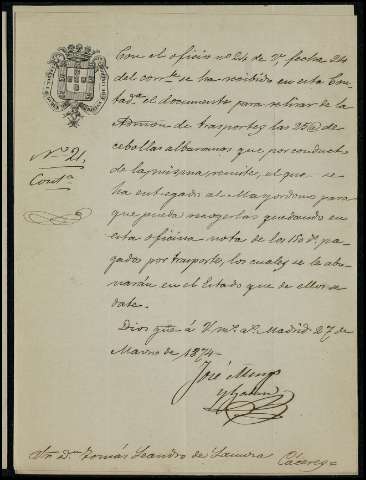 Con el oficio nº 24 de V, fecha 24
del corrte. se ha recibido en esta Con
tadª. el documento para retirar de la
Admon. de trasportes las 25@ de
cebollas albarranas que, por conducto
de la misma, remites, el que se
ha entregado al Mayordomo para
que pueda recogerlas quedando en
esta oficina nota de los 150 rs. pa
gados por trasporte, los cuales se le abo
narán en el Estado que de ellos se
date.
Dios gue. á V. ms. as. Madrid 27 de
Marzo de 1874-
Nº 21,
Contª.
José
Sr. Dn. Tomás Leandro de
Cáceres=